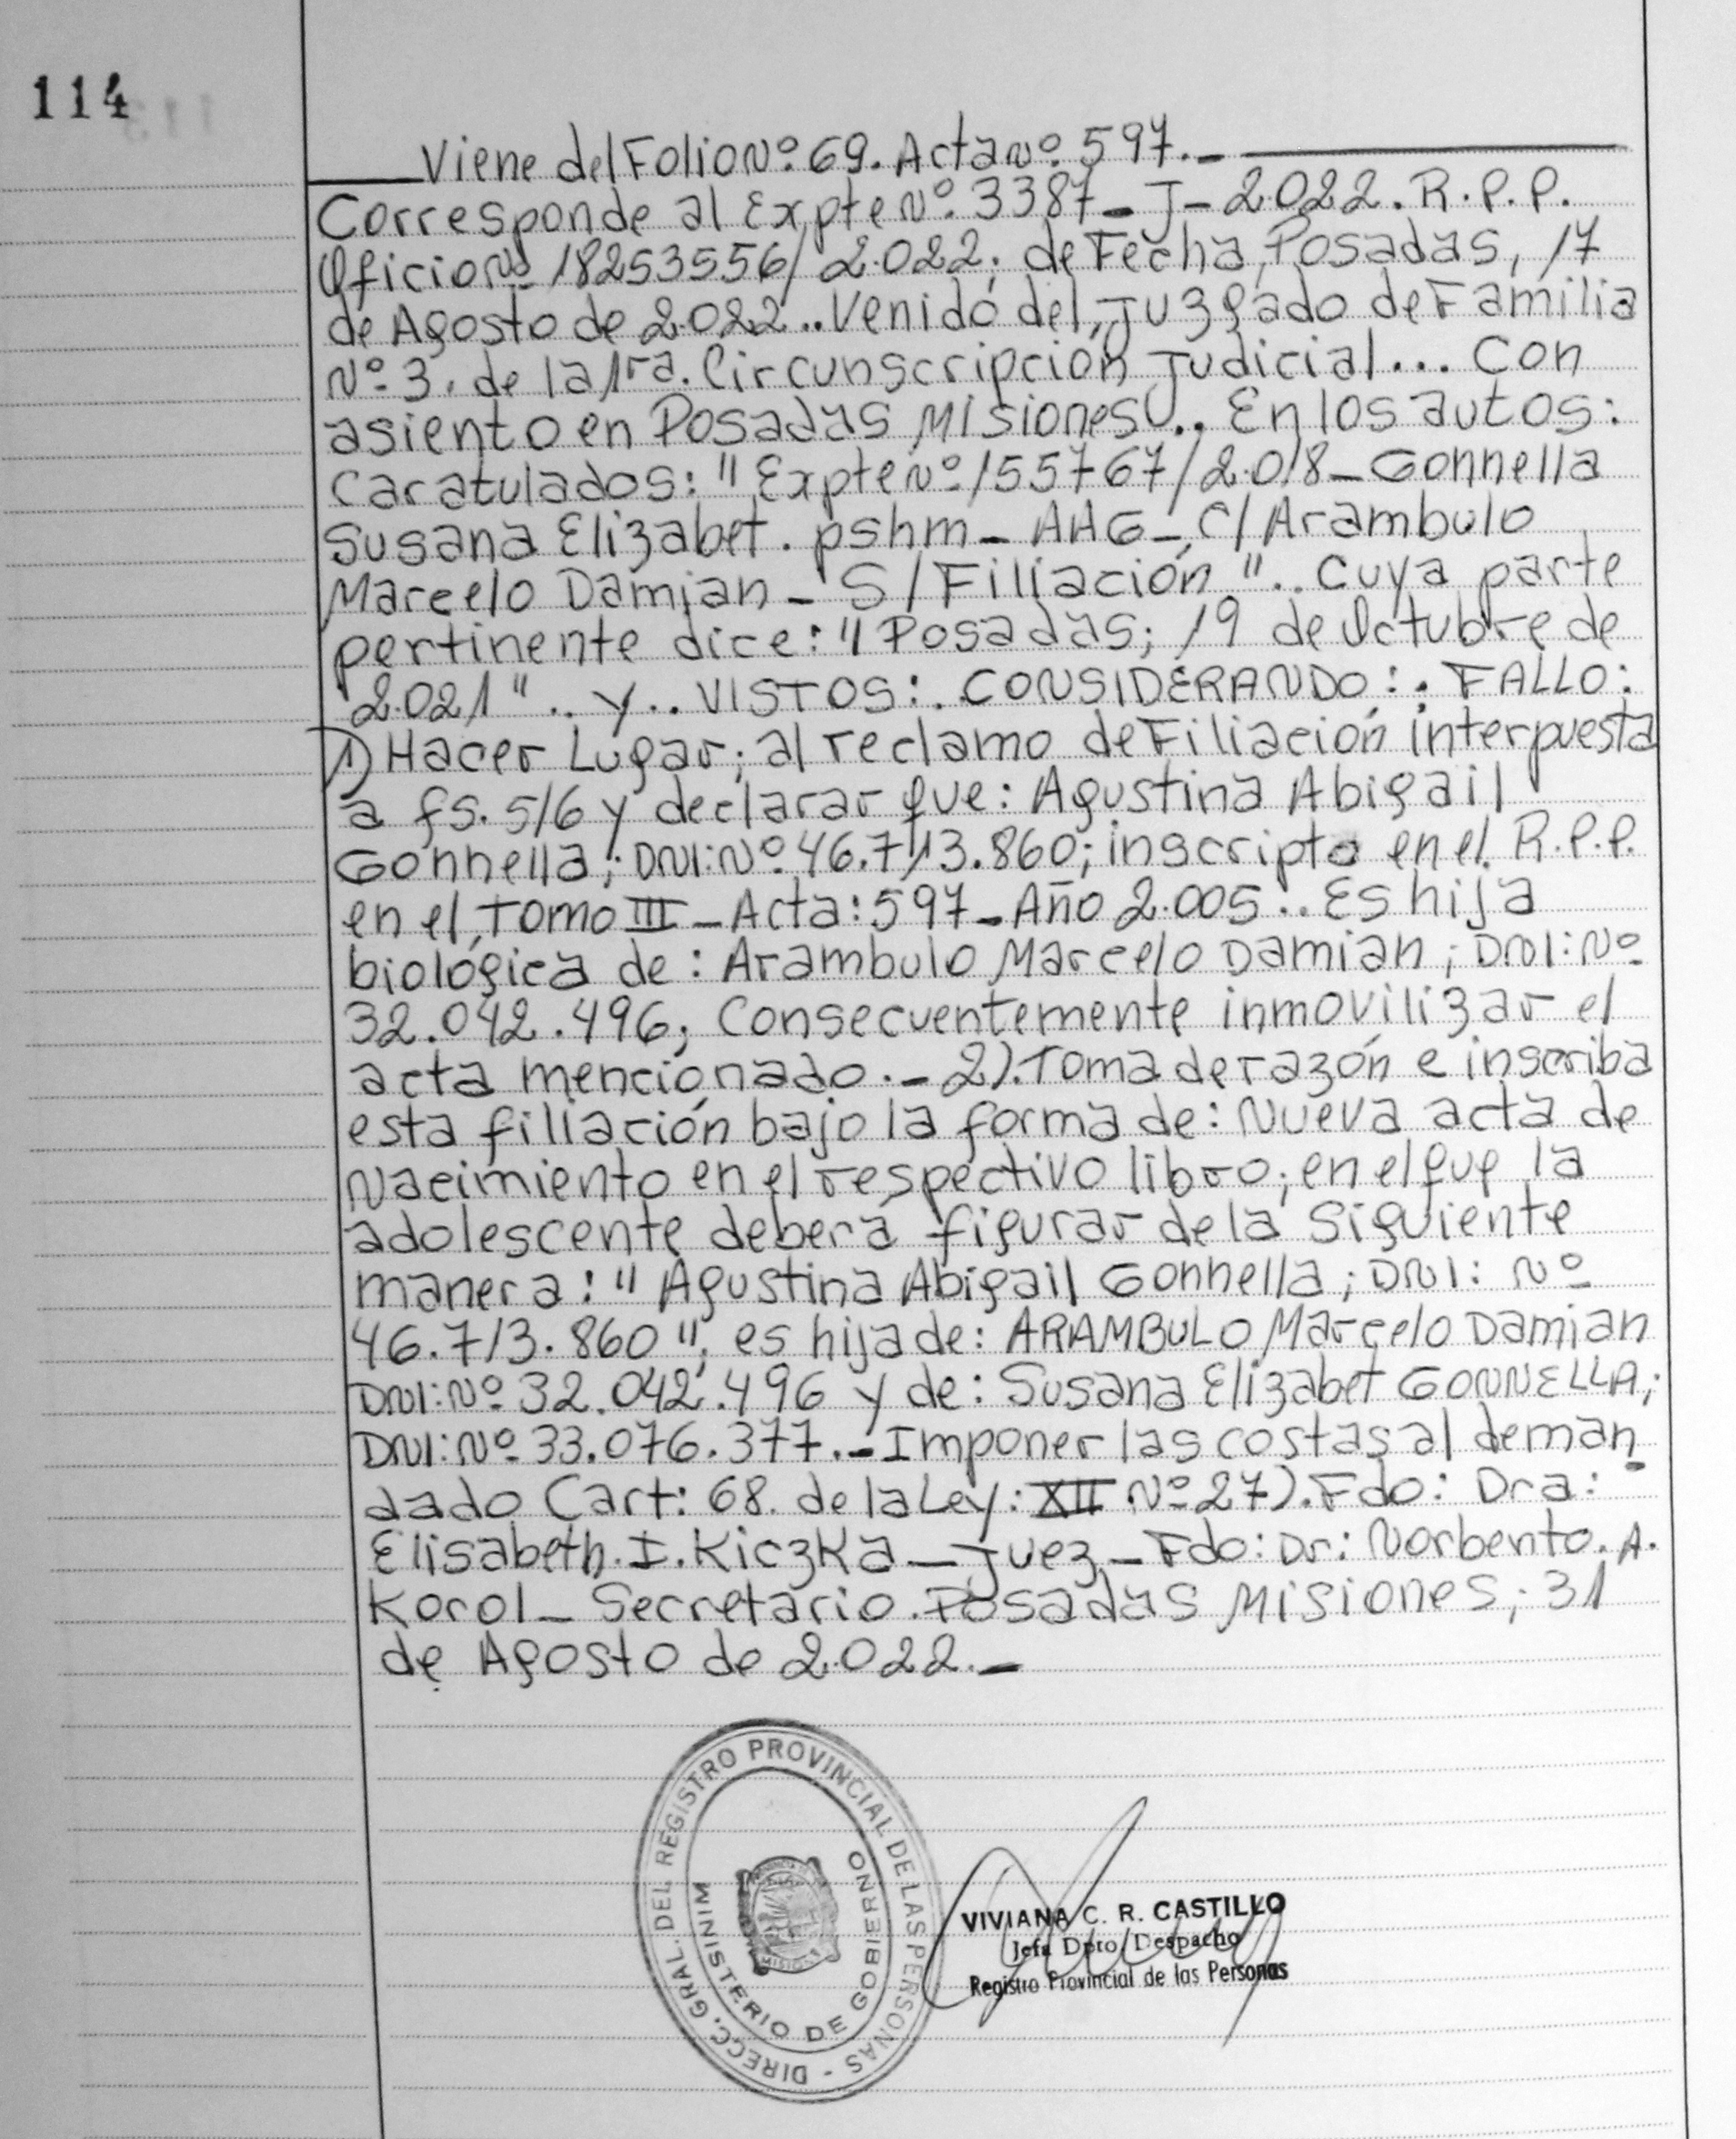 114
Viene del Folio Nº: 69. Acta Nº: 597.-
Corresponde al Expte Nº: 3387-J-2.022. R.P.P.
Oficio Nº 18253556/2.022; de Fecha, Posadas, 17
de Agosto de 2.022.. Venido del, Juzgado de Familia
Nº 3. de la 1ra. Circunscripción Judicial... Con
asiento en Posadas Misiones.. En los autos:
Caratulados: "Expte Nº 155767/2.018- Gonnella
Susana Elizabet. pshm - AAG - C/ Arambulo
Marcelo Damian - S/ Filiación".. Cuya parte
pertinente dice: "Posadas; 19 de Octubre de
2.021".. Y.. VISTOS: . CONSIDERANDO: . FALLO:
1) Hacer Lugar; al reclamo de Filiación interpuesta
a fs. 5/6 y declarar que: Agustina Abigail
Gonnella; DNI: Nº 46.713.860; inscripto en el. R.P.P.
en el, Tomo III - Acta: 597 - Año 2.005.. Es hija
biológica de: Arambulo Marcelo Damian; DNI: Nº
32.042.496; Consecuentemente inmovilizar el
acta mencionado.- 2). Toma de razón e inscriba
esta filiación bajo la forma de: Nueva acta de
Nacimiento en el respectivo libro; en el que la
adolescente deberá figurar de la siguiente
manera: "Agustina Abigail Gonnella; DNI: Nº
46.713.860"; es hija de: ARAMBULO Marcelo Damian
DNI: Nº 32.042.496 y de: Susana Elizabet GONNELLA;
DNI: Nº 33.076.377.- Imponer las costas al deman
dado Cart: 68. de la Ley: XII Nº 27). Fdo: Dra:
Elisabeth. I. Kiczka - Juez - Fdo: Dr: Norbento. A.
Korol - Secretario. Posadas Misiones; 31
de Agosto de 2.022.-
DIRECC. GRAL. DEL REGISTRO PROVINCIAL DE LAS PERSONAS -
MINISTERIO DE GOBIERNO
VIVIANA C. R. CASTILLO
Jefa Dpto. Despacho
Registro Provincial de las Personas